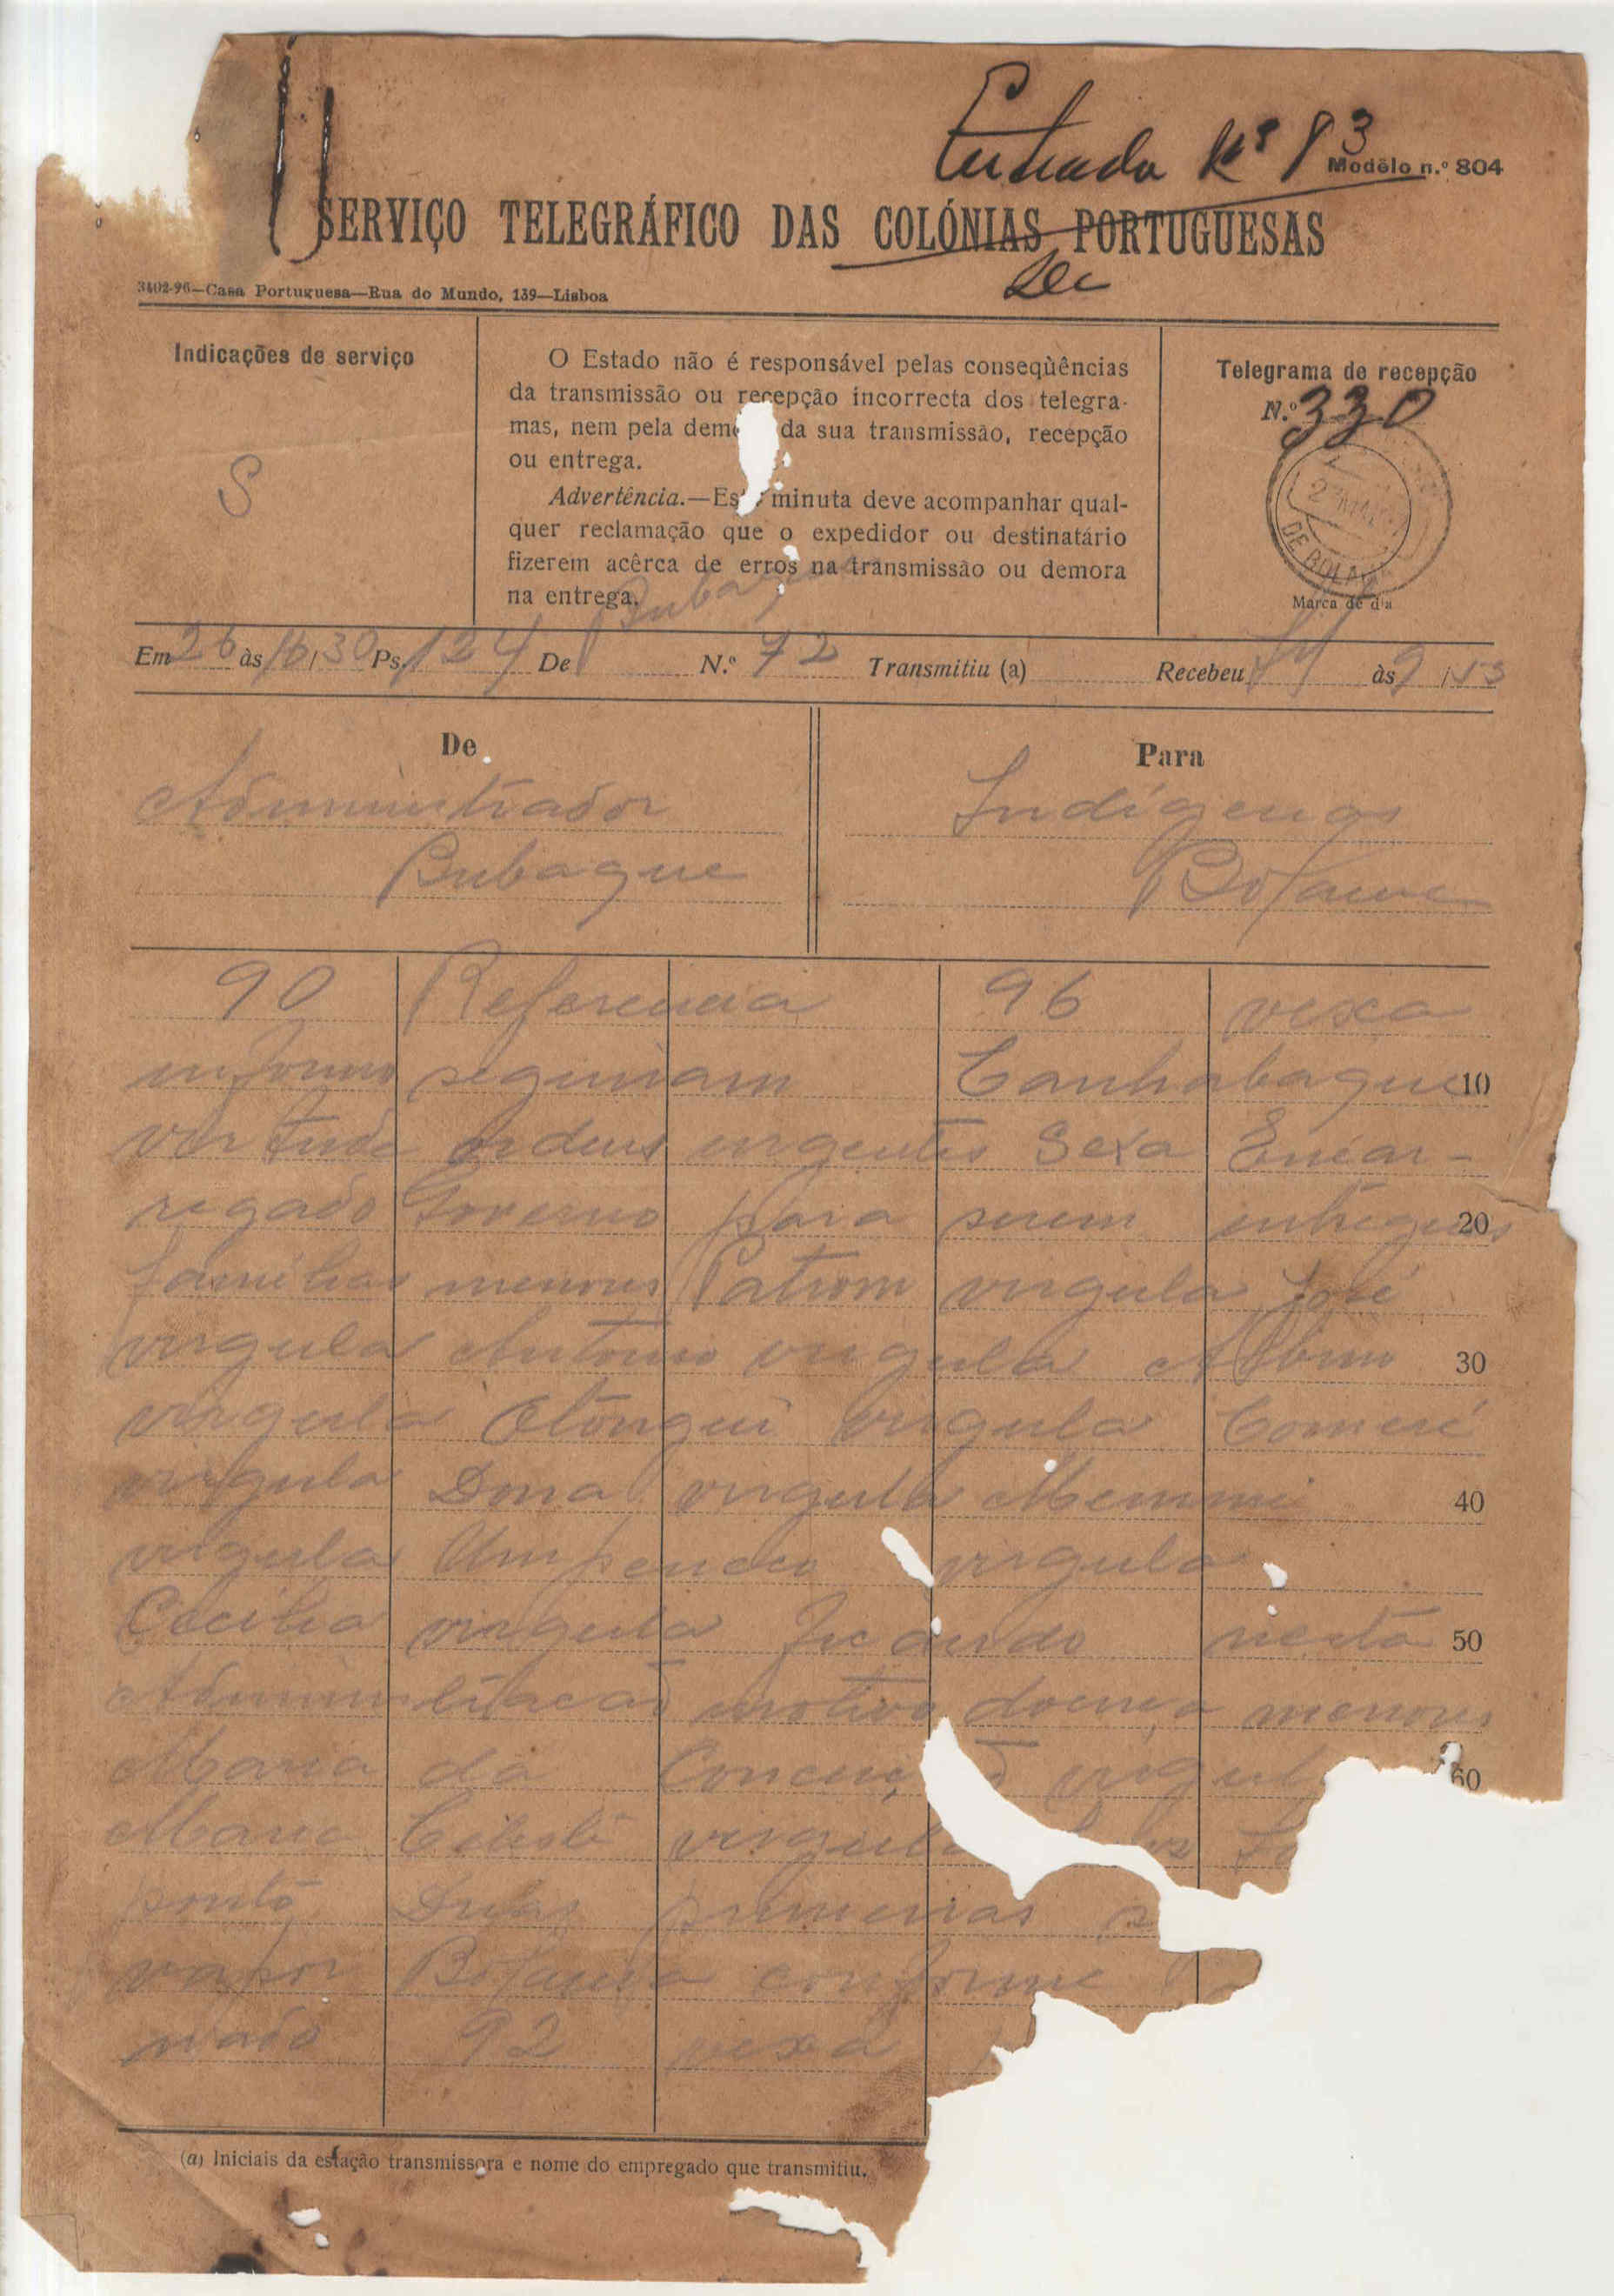 Entrada Nº 83
Modêlo n.º 804
SERVIÇO TELEGRÁFICO DAS COLÓNIAS PORTUGUESAS
3402-96—Casa Portuguesa—Rua do Mundo, 139—Lisboa
Indicações de serviço
S
O Estado não é responsável pelas conseqùências
da transmissão ou recepção incorrecta dos telegra-
mas, nem pela dem da sua transmissão, recepção
ou entrega.
Advertência.—Es minuta deve acompanhar qual-
quer reclamação que o expedidor ou destinatário
fizerem acêrca de erros na transmissão ou demora
na entrega.
Telegrama de recepção
N.º 330
DE BOLAMA
Marca de dia
Bubaque
Em 26 às 16/30 Ps. 124 De N.º 72 Transmitiu (a) Recebeu às 9/53
De
Administrador
Bubaque
Para
Indígenas
Bolama
90 Referencia 96 vexa
informo seguiram Canhabaque 10
virtude ordens urgentes Sexa Encar-
regado Governo para serem entregues 20
familias menores Patrom virgula José
virgula Antonio virgula Albino 30
virgula virgula
virgula virgula 40
virgula virgula
Cecilia virgula ficando nesta 50
Administracão motivo doença menores
Maria da Conceiç virgul 60
Maria Celeste virgula
ponto Duas primeiras
vapor Bolama conforme
92 vexa
(a) Iniciais da estação transmissora e nome do empregado que transmitiu.